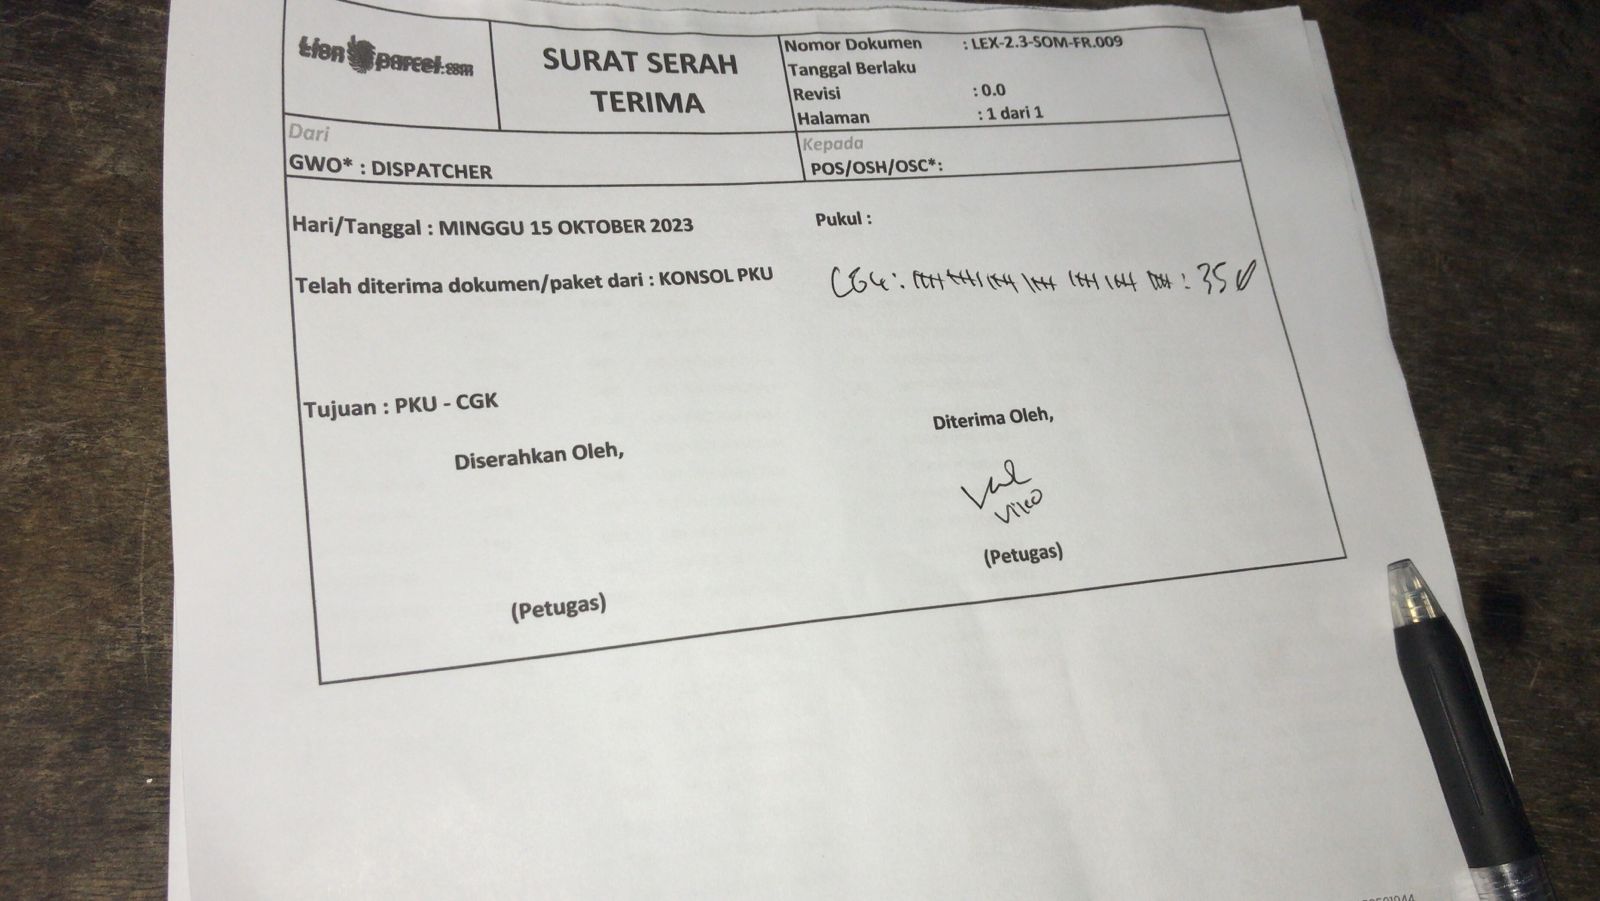 Lion parcel.com
SURAT SERAH
TERIMA
Nomor Dokumen : LEX-2.3-SOM-FR.009
Tanggal Berlaku
Revisi : 0.0
Halaman : 1 dari 1
Dari
GWO* : DISPATCHER
Kepada
POS/OSH/OSC*:
Hari/Tanggal : MINGGU 15 OKTOBER 2023
Pukul :
Telah diterima dokumen/paket dari : KONSOL PKU
CGK: : 35
Tujuan : PKU - CGK
Diserahkan Oleh,
(Petugas)
Diterima Oleh,
Viko
(Petugas)